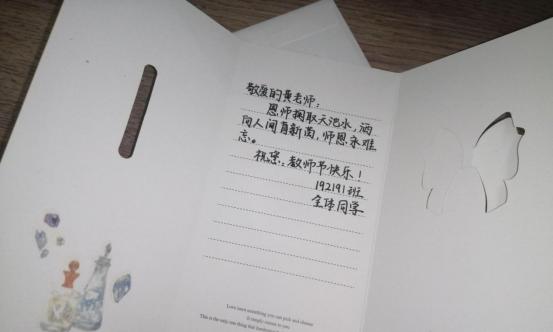 敬爱的黄老师：
恩师掬取天池水，洒
向人间育新苗，师恩永难
忘。
祝您：教师节快乐！
192191班
全体同学
Love isn't something you can pick and choose
it simply comes to you
This is the only one thing that